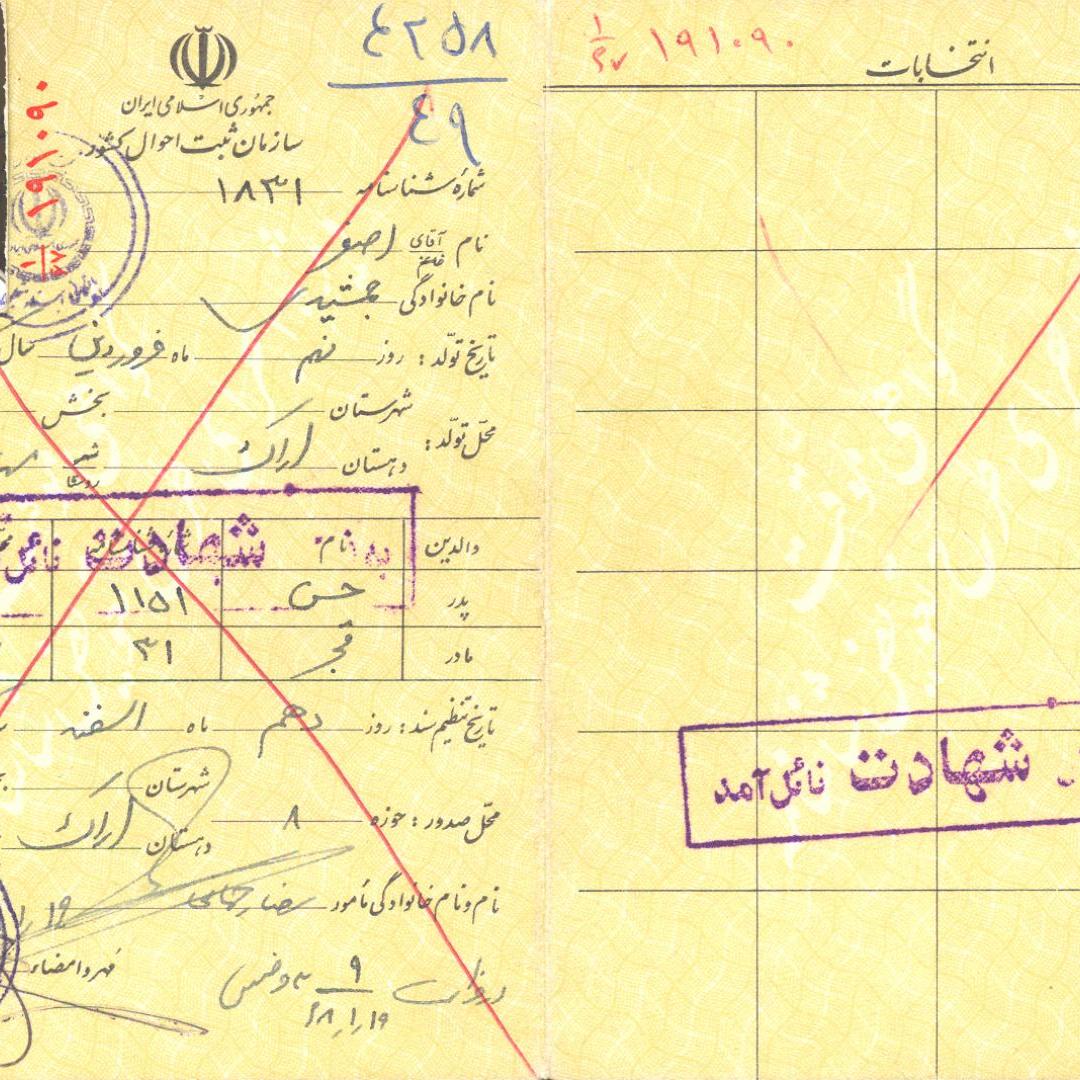 ۴۲۵۸
۴۹
جمهوری اسلامی ایران
سازمان ثبت احوال کشور
شمارهٔ شناسنامه ۱۸۳۱
نام آقای خانم اصغر
نام خانوادگی جمشیدی
تاریخ تولد: روز نهم ماه فروردین سال
محل تولد: شهرستان بخش
دهستان اراک شهر روستا
والدین نام شماره شناسنامه
پدر حسن ۱۱۵۱
مادر ۳۱
به شهادت نائل
تاریخ تنظیم سند: روز دهم ماه اسفند
محل صدور: حوزه ۸ شهرستان
دهستان اراک
نام و نام خانوادگی مأمور
مهر و امضاء
۱۹۱۰۹۰
انتخابات
۱۹۱۰۹۰
شهادت نائل آمد